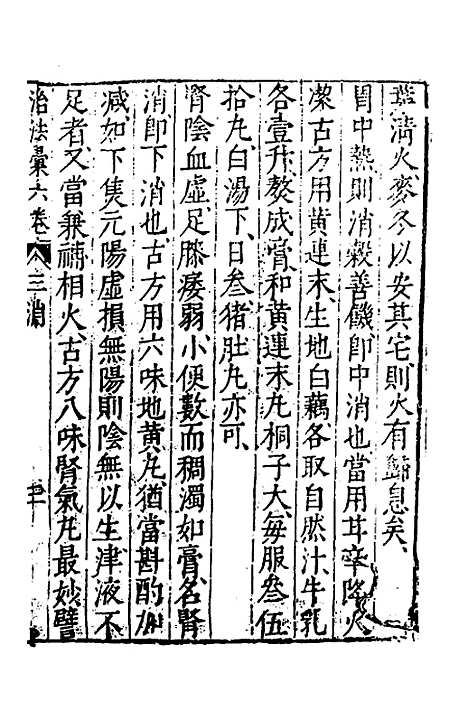 葉清火麥冬以安其宅則火有歸息矣、
胃中熱則消穀善饑即中消也當用甘辛降火
潔古方用黃連末、生地白藕、各取自然汁、牛乳
各壹升、熬成膏、和黃連末丸桐子大、每服叁伍
拾丸、白湯下、日叁猪肚丸亦可、
腎陰血虛、足膝痿弱、小便數而稠濁如膏、名腎
消、即下消也、古方用六味地黃丸、猶當斟酌加
減、如下焦元陽虛損、無陽則陰無以生津液不
足者、又當兼補相火、古方八味腎氣丸最妙、譬
治法彙六卷 三消